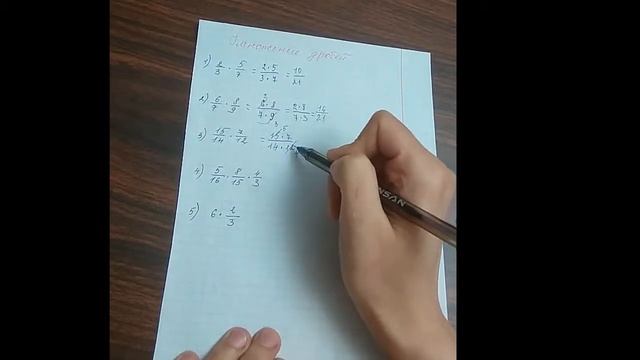 Умножение дробей
1) 2/3 · 5/7 = 2·5/3·7 = 10/21
2) 6/7 · 8/9 = 6·8/7·9 = 2·8/7·3 = 16/21
3) 15/14 · 7/12 = 15·7/14·12
4) 5/16 · 8/15 · 4/3
5) 6 · 2/3